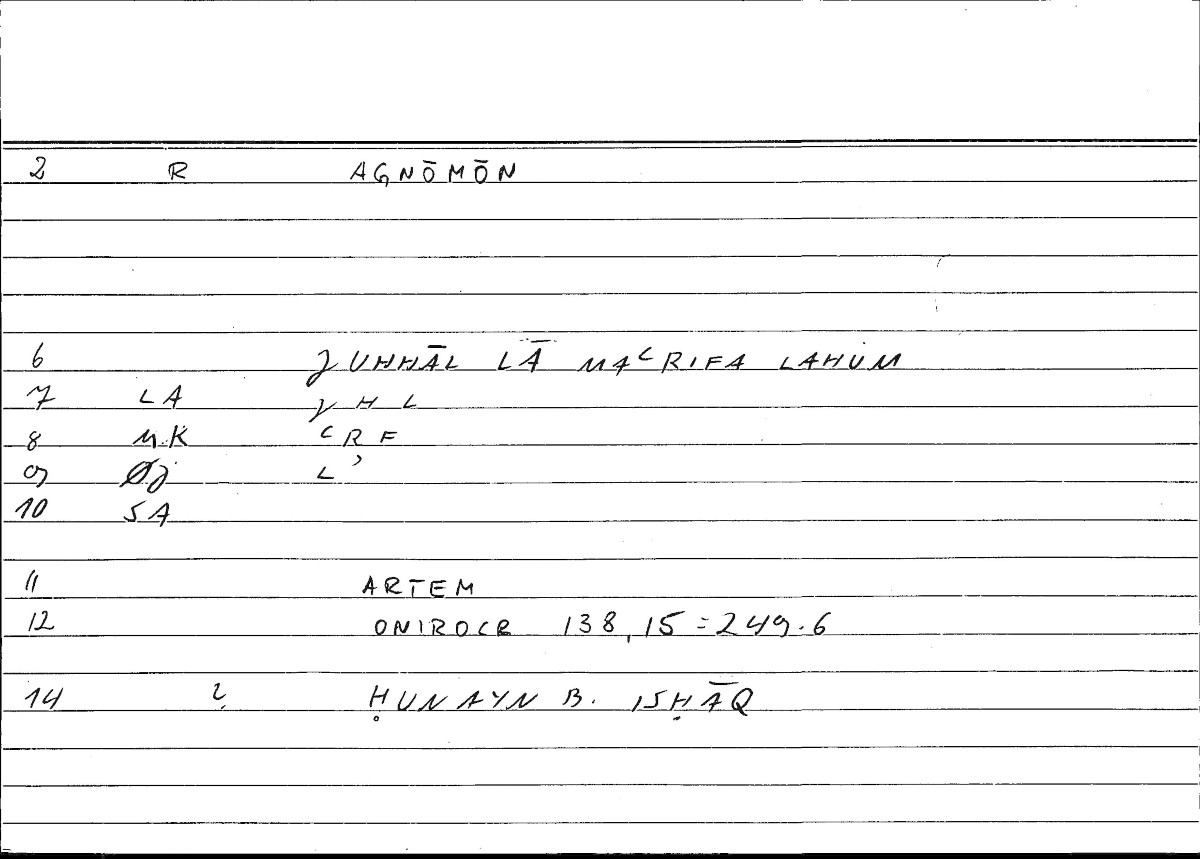 2 R AGNŌMŌN
6 JUHHĀL LĀ MAʿRIFA LAHUM
7 LA JHL
8 MK ʿRF
9 ØJ Lʾ
10 SA
11 ARTEM
12 ONIROCR 138,15=249.6
14 ? ḤUNAYN B. ISḤĀQ